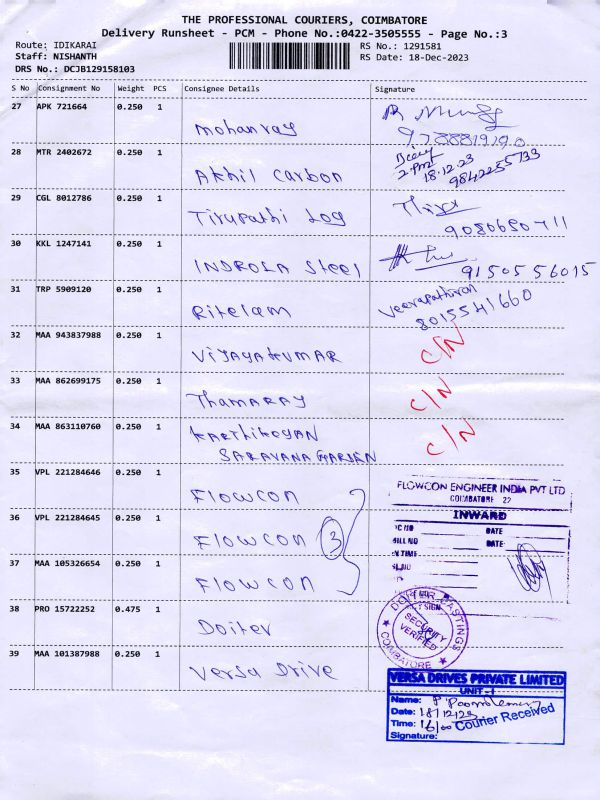 THE PROFESSIONAL COURIERS, COIMBATORE
Delivery Runsheet - PCM - Phone No.:0422-3505555 - Page No.:3
Route: IDIKARAI
Staff: NISHANTH
DRS No.: DCJB129158103
RS No.: 1291581
RS Date: 18-Dec-2023
S No Consignment No Weight PCS Consignee Details Signature
27 APK 721664 0.250 1 Mohanray
28 MTR 2402672 0.250 1 Akhil Carbon
18.12.23
9842255733
29 CGL 8012786 0.250 1 Tirupathi Log
9080680711
30 KKL 1247141 0.250 1 INDROLA Steel
9150556015
31 TRP 5909120 0.250 1 Ritelam
Veerapathiran
8015541660
32 MAA 943837988 0.250 1 VIJAYAKUMAR C/N
33 MAA 862699175 0.250 1 Thamaray C/N
34 MAA 863110760 0.250 1 KARTHIKOYAN C/N
SARAVANA GARDEN
35 VPL 221284646 0.250 1 Flowcon
36 VPL 221284645 0.250 1 Flowcon 3
37 MAA 105326654 0.250 1 Flowcon
FLOWCON ENGINEER INDIA PVT LTD
COIMBATORE 22
INWARD
DATE
BILL NO DATE
IN TIME
38 PRO 15722252 0.475 1 Doiter
DOITER CASTINGS
SECURITY
VERIFIED
COIMBATORE
39 MAA 101387988 0.250 1 Versa Drive
VERSA DRIVES PRIVATE LIMITED
UNIT - I
Name:
Date: 18/12/23
Time: 16/00 Courier Received
Signature: